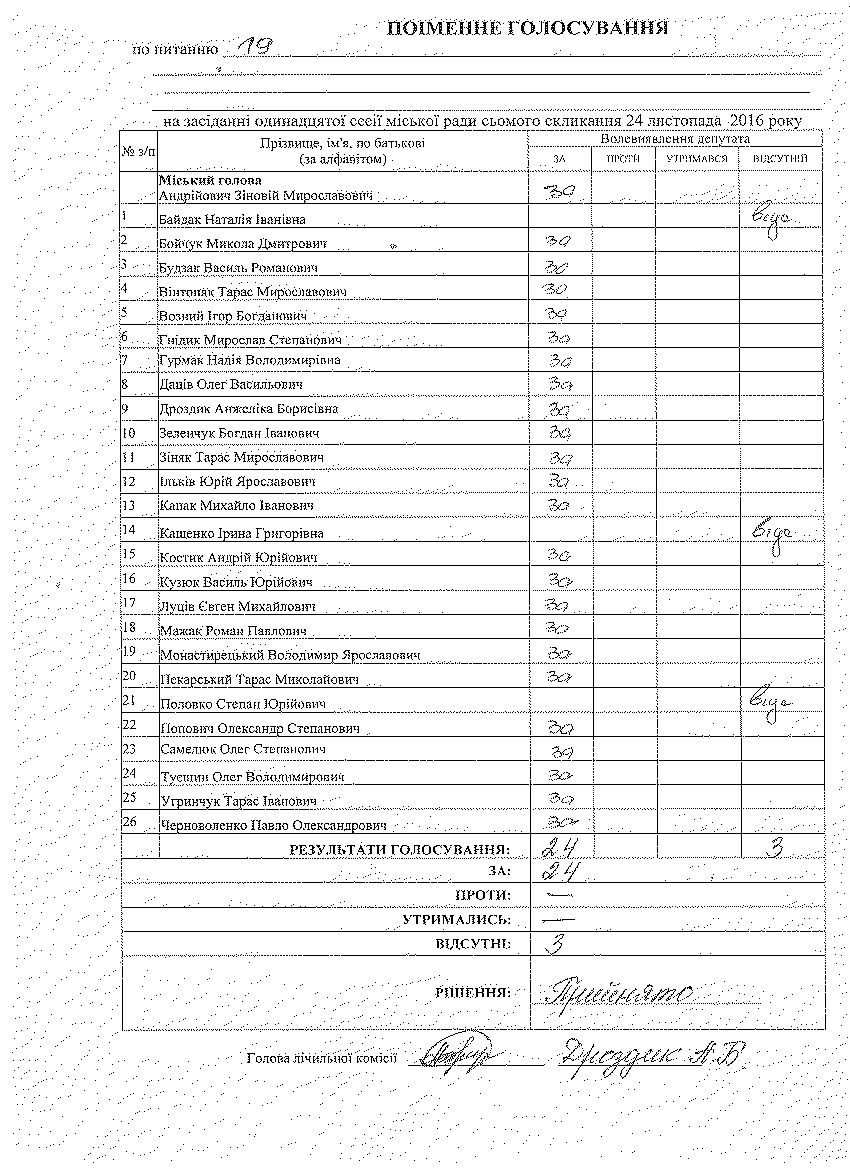 ПОІМЕННЕ ГОЛОСУВАННЯ
по питанню 19
на засіданні одинадцятої сесії міської ради сьомого скликання 24 листопада 2016 року
№ з/п Прізвище, ім'я, по батькові (за алфавітом) Волевиявлення депутата
ЗА ПРОТИ УТРИМАВСЯ ВІДСУТНІЙ
Міський голова
Андрійович Зіновій Мирославович За
1 Байдак Наталія Іванівна відс
2 Бойчук Микола Дмитрович За
3 Будзак Василь Романович За
4 Вінтоняк Тарас Мирославович За
5 Возний Ігор Богданович За
6 Гнідик Мирослав Степанович За
7 Гурмак Надія Володимирівна За
8 Даців Олег Васильович За
9 Дроздик Анжеліка Борисівна За
10 Зеленчук Богдан Іванович За
11 Зіняк Тарас Мирославович За
12 Ільків Юрій Ярославович За
13 Капак Михайло Іванович За
14 Кащенко Ірина Григорівна відс
15 Костик Андрій Юрійович За
16 Кузюк Василь Юрійович За
17 Луців Євген Михайлович За
18 Мажак Роман Павлович За
19 Монастирецький Володимир Ярославович За
20 Пекарський Тарас Миколайович За
21 Половко Степан Юрійович відс
22 Попович Олександр Степанович За
23 Самелюк Олег Степанович За
24 Туєшин Олег Володимирович За
25 Угринчук Тарас Іванович За
26 Черноволенко Павло Олександрович За
РЕЗУЛЬТАТИ ГОЛОСУВАННЯ: 24 3
ЗА: 24
ПРОТИ: —
УТРИМАЛИСЬ: —
ВІДСУТНІ: 3
РІШЕННЯ: Прийнято
Голова лічильної комісії Дроздик А.Б.